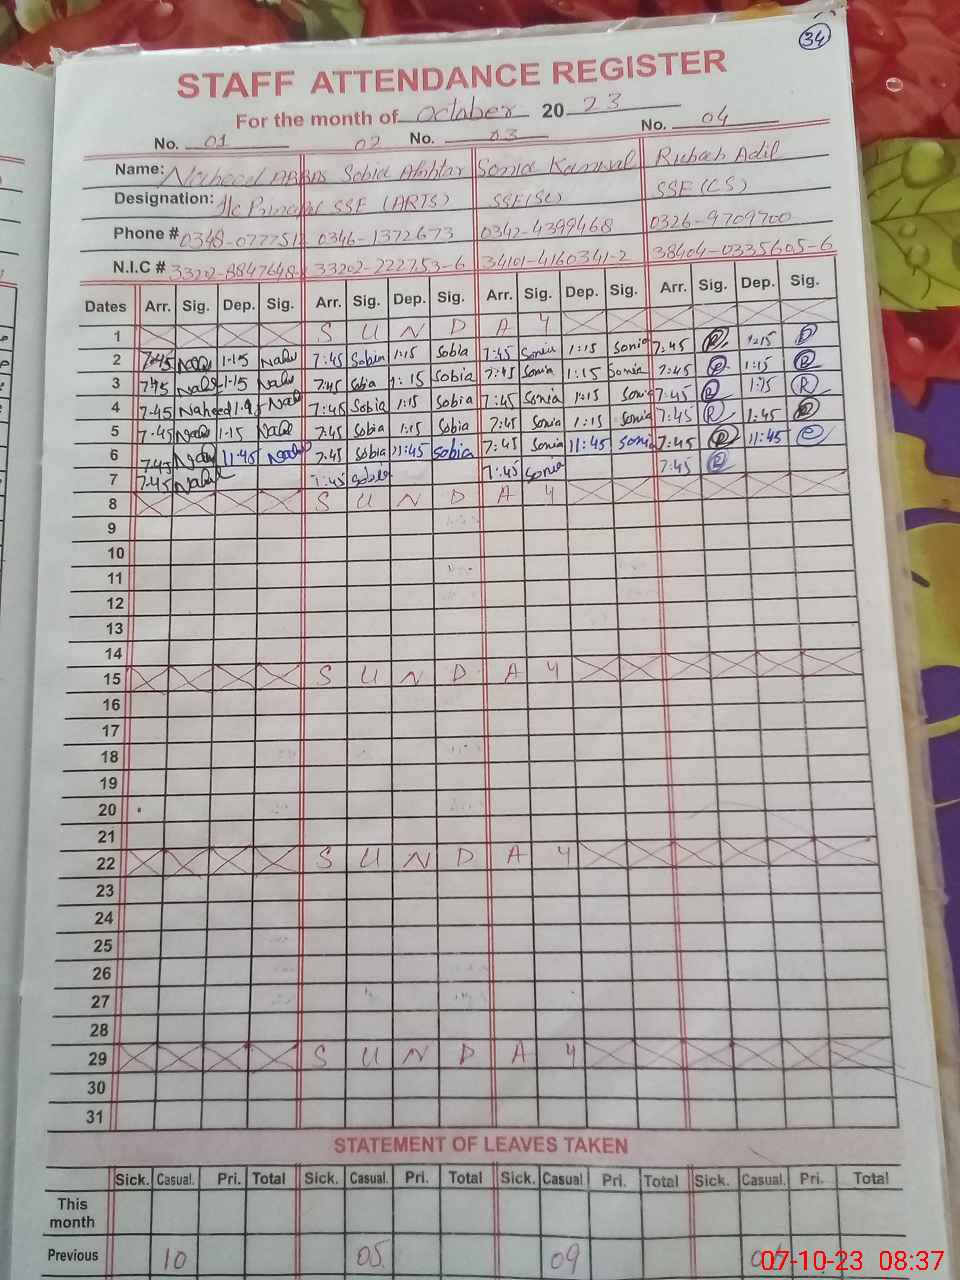 34
STAFF ATTENDANCE REGISTER
For the month of October 20 23
No. 01 02 No. 03 No. 04
Name: Naheed ABBAS Sobia Akhtar Sonia Kanwal Rubab Adil
Designation: I/c Principal SSE (ARTS) SSE(Sc) SSE (CS)
Phone # 0348-077751 0346-1372673 0342-4399468 0326-9709700
N.I.C # 33202-8847648- 33202-222753-6 34101-4160341-2 38404-0335605-6
Dates Arr. Sig. Dep. Sig. Arr. Sig. Dep. Sig. Arr. Sig. Dep. Sig. Arr. Sig. Dep. Sig.
1 S U N D A Y
2 7:45 1:15 7:45 Sobia 1:15 Sobia 7:45 Sonia 1:15 Sonia 7:45 R 1:15 R
3 7:45 1:15 7:45 Sobia 1:15 Sobia 7:45 Sonia 1:15 Sonia 7:45 R 1:15 R
4 7:45 Naheed 7:45 Sobia 1:15 Sobia 7:45 Sonia 1:15 Sonia 7:45 R 1:15 R
5 7:45 1:15 7:45 Sobia 1:15 Sobia 7:45 Sonia 1:15 Sonia 7:45 R 1:45 R
6 7:45 11:45 7:45 Sobia 11:45 Sobia 7:45 Sonia 11:45 Sonia 7:45 R 11:45 R
7 7:45 7:45 Sobia 7:45 Sonia 7:45 R
8 S U N D A Y
9
10
11
12
13
14
15 S U N D A Y
16
17
18
19
20
21
22 S U N D A Y
23
24
25
26
27
28
29 S U N D A Y
30
31
STATEMENT OF LEAVES TAKEN
Sick. Casual. Pri. Total Sick. Casual. Pri. Total Sick. Casual Pri. Total Sick. Casual. Pri. Total
This month
Previous 10 05 09
07-10-23 08:37